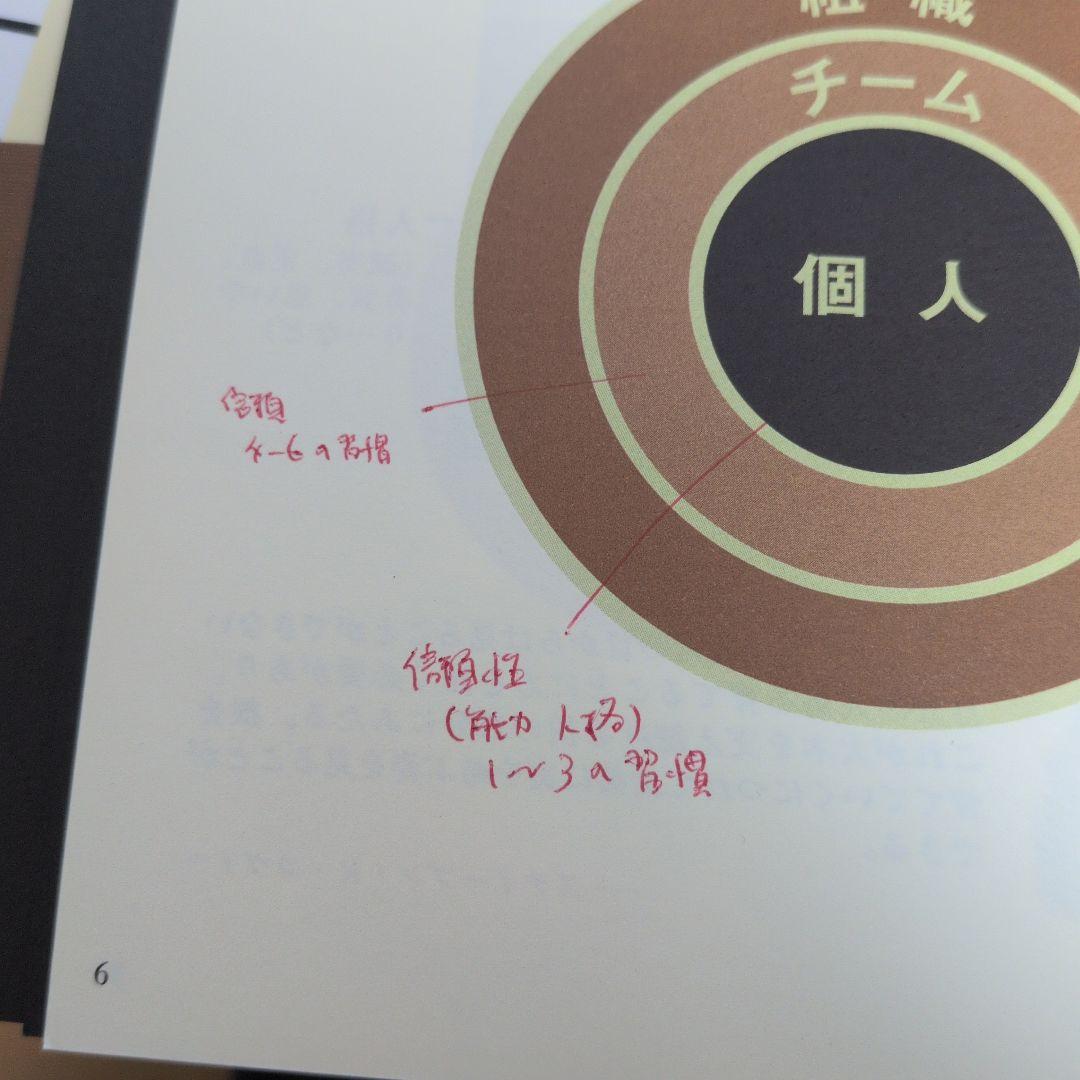 組織
チーム
個人
信頼
4-6の習慣
信頼性
(能力 人格)
1~3の習慣
6